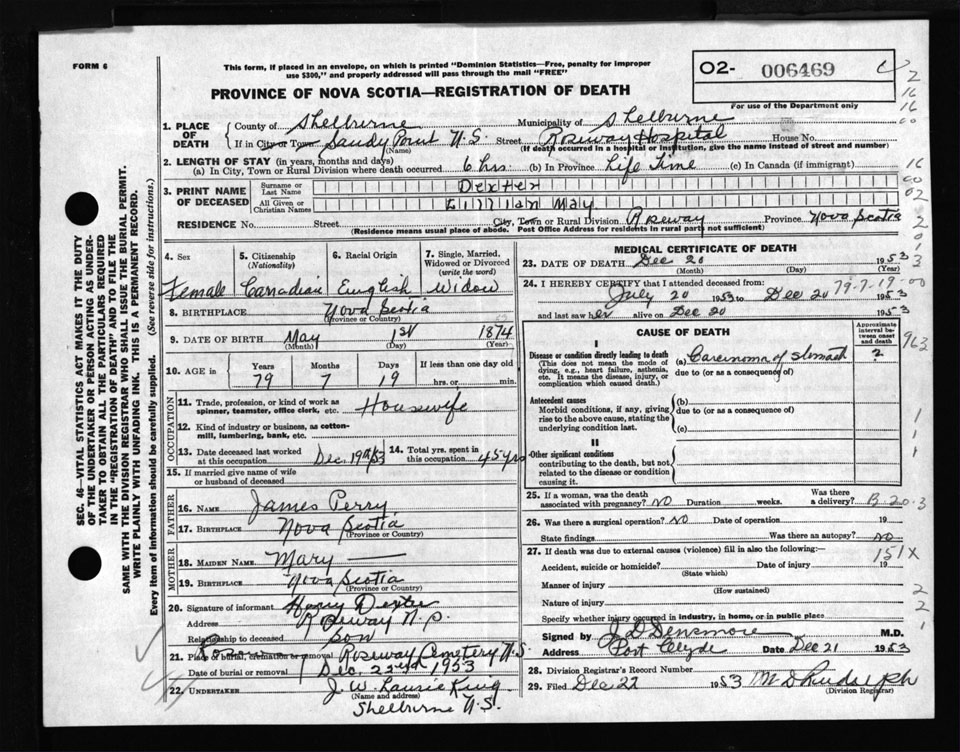 FORM 6
This form, if placed in an envelope, on which is printed "Dominion Statistics—Free, penalty for improper
use $300," and properly addressed will pass through the mail "FREE"
O2- 006469
For use of the Department only
PROVINCE OF NOVA SCOTIA—REGISTRATION OF DEATH
1. PLACE OF DEATH
County of Shelburne Municipality of Shelburne
If in City or Town Sandy Point N.S. Street Roseway Hospital House No.
(Name) (If death occurred in a hospital or institution, give the name instead of street and number)
2. LENGTH OF STAY (in years, months and days)
(a) In City, Town or Rural Division where death occurred 6 hrs. (b) In Province Life Time (c) In Canada (if immigrant)
3. PRINT NAME OF DECEASED
Surname or Last Name Dexter
All Given or Christian Names Lillian May
RESIDENCE No. Street City, Town or Rural Division Roseway Province Nova Scotia
(Residence means usual place of abode. Post Office Address for residents in rural parts not sufficient)
4. Sex Female
5. Citizenship (Nationality) Canadian
6. Racial Origin English
7. Single, Married, Widowed or Divorced (write the word) Widow
8. BIRTHPLACE Nova Scotia
(Province or Country)
9. DATE OF BIRTH May 1st 1874
(Month) (Day) (Year)
10. AGE in Years 79 Months 7 Days 19 If less than one day old hrs. or min.
OCCUPATION
11. Trade, profession, or kind of work as spinner, teamster, office clerk, etc. Housewife
12. Kind of industry or business, as cotton-mill, lumbering, bank, etc.
13. Date deceased last worked at this occupation Dec. 19th/53 14. Total yrs. spent in this occupation 45 yrs
15. If married give name of wife or husband of deceased
FATHER
16. NAME James Perry
17. BIRTHPLACE Nova Scotia
(Province or Country)
MOTHER
18. MAIDEN NAME Mary
19. BIRTHPLACE Nova Scotia
(Province or Country)
20. Signature of informant Harry Dexter
Address Roseway N.S.
Relationship to deceased son
21. Place of burial, cremation or removal Roseway Cemetery N.S.
Date of burial or removal Dec. 22nd 1953
22. UNDERTAKER J. W. Laurie King
(Name and address)
Shelburne N.S.
MEDICAL CERTIFICATE OF DEATH
23. DATE OF DEATH Dec 20 1953
(Month) (Day) (Year)
24. I HEREBY CERTIFY that I attended deceased from: 79-7-19-00
July 20 1953 to Dec 20 1953
and last saw her alive on Dec 20 1953
CAUSE OF DEATH
Approximate interval between onset and death
I
Disease or condition directly leading to death
(This does not mean the mode of dying, e.g., heart failure, asthenia, etc. It means the disease, injury, or complication which caused death.)
(a) Carcinoma of stomach 2
due to (or as a consequence of)
Antecedent causes
Morbid conditions, if any, giving rise to the above cause, stating the underlying condition last.
(b)
due to (or as a consequence of)
(c)
II
Other significant conditions
contributing to the death, but not related to the disease or condition causing it.
25. If a woman, was the death associated with pregnancy? NO Duration weeks. Was there a delivery? B-20-3
26. Was there a surgical operation? NO Date of operation 19
State findings Was there an autopsy? NO
27. If death was due to external causes (violence) fill in also the following:— 151X
Accident, suicide or homicide? Date of injury 19
(State which)
Manner of injury
(How sustained)
Nature of injury
Specify whether injury occurred in industry, in home, or in public place
Signed by J D Densmore M.D.
Address Port Clyde Date Dec 21 1953
28. Division Registrar's Record Number
29. Filed Dec 22 1953
(Division Registrar)
SEC. 46—VITAL STATISTICS ACT MAKES IT THE DUTY
OF THE UNDERTAKER OR PERSON ACTING AS UNDER-
TAKER TO OBTAIN ALL THE PARTICULARS REQUIRED
IN THE "REGISTRATION OF DEATH" AND TO FILE THE
SAME WITH THE DIVISION REGISTRAR WHO SHALL ISSUE THE BURIAL PERMIT.
WRITE PLAINLY WITH UNFADING INK. THIS IS A PERMANENT RECORD.
Every item of information should be carefully supplied. (See reverse side for instructions.)
2
16
16
00
16
00
02
2
0
1
3
963
1
1
1
2
2
1